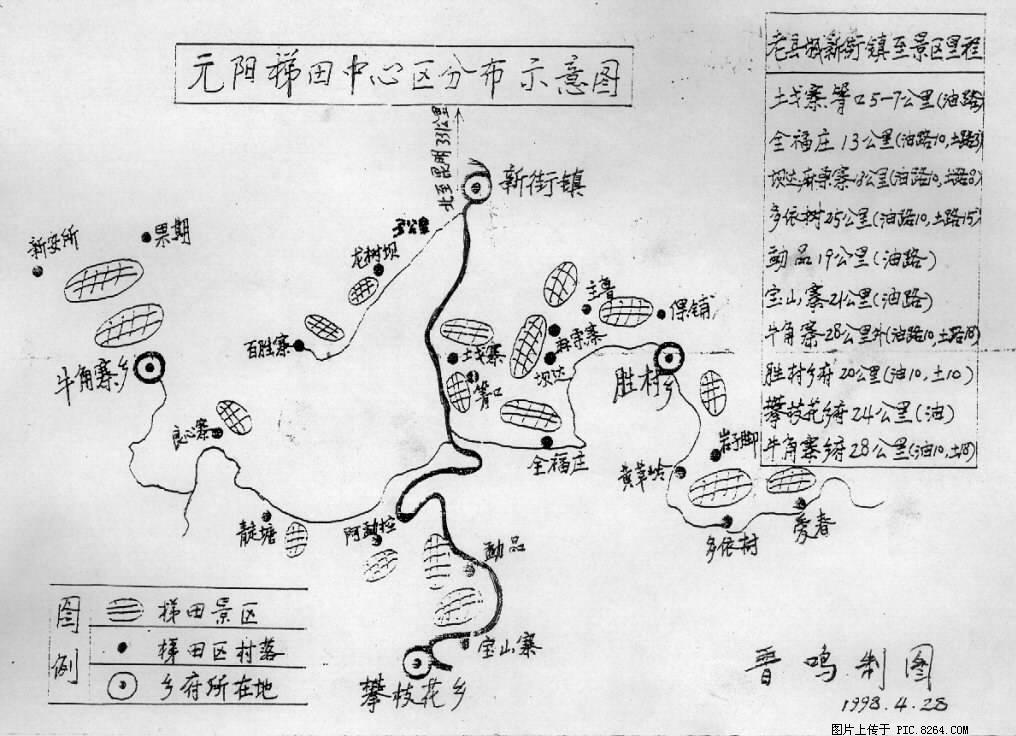 元阳梯田中心区分布示意图
老县城新街镇至景区里程
土戈寨箐口5-7公里(油路)
全福庄13公里(油路10,土路3)
多依树25公里(油路10,土路15)
勐品19公里(油路)
宝山寨21公里(油路)
牛角寨28公里外(油路10,土路18)
胜村乡府20公里(油10,土10)
攀枝花乡府24公里(油)
牛角寨乡府28公里(油10,土18)
北至昆明331公里
新街镇
新安所
果期
龙树坝
百胜寨
牛角寨乡
主鲁
保铺
麻栗寨
坝达
土戈寨
箐口
胜村乡
良心寨
全福庄
岩子脚
黄草岭
多依树
爱春
龍塘
阿勐拉
勐品
宝山寨
攀枝花乡
图例
梯田景区
梯田区村落
乡府所在地
晋鸣制图
1998.4.28
图片上传于 PIC.8264.COM